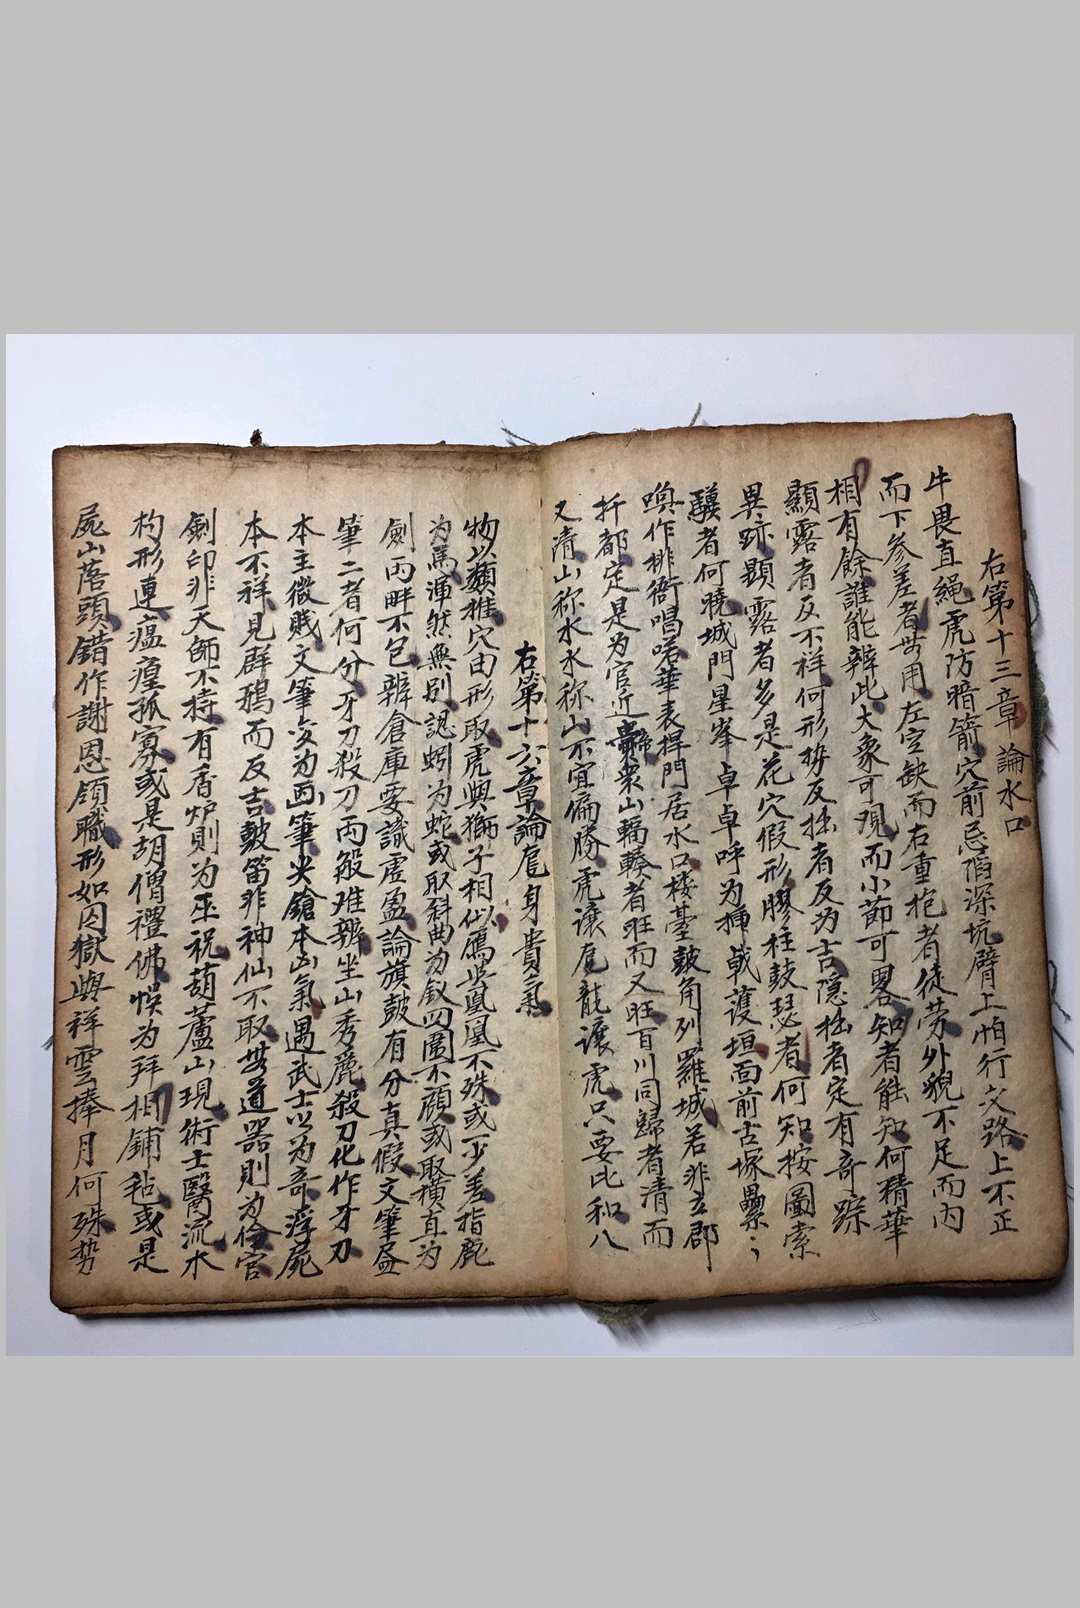 右第十三章論水口
牛畏直繩虎防暗箭穴前忌陷深坑臂上怕行交路上不正
而下参差者毋用左空缺而右重抱者徒劳外貌不足而内
相有餘誰能辨此大象可观而小節可畧知者能知何精華
顯露者反不祥何形势反拙者反为吉隐拙者定有奇踪
異跡顕露者多是花穴假形膠柱鼓瑟者何知按圖索
驥者何曉城門星峯卓卓呼为挿戟護垣面前古塚纍〻
嗅作排衙唱喏華表捍門居水口楼臺鼓角列羅城若非立郡
扦都定是为官近衆山輻輳者旺而又旺百川同歸者清而
又清山称水水称山不宜偏勝虎讓龍讓虎只要比和八
右第十六章論身貴氣
物以類推穴由形取虎與獅子相似鴈與凰凰不殊或一少差指鹿
为馬渾然無别認蚓为蛇或取斜曲为釵四圍不顧或取横直为
劍两畔不包辨倉庫要識虚盈論旗鼓有分真假文筆盛
筆二者何分牙刀殺刀两般难辨坐山秀麗殺刀化作牙刀
本主微贱文筆变为画筆尖鎗本凶氣遇武士以为奇浮屍
本不祥見群鴉而反吉皷笛非神仙不取毋道器則为伶官
劍印非天師不持有香炉則为巫祝葫蘆山現術士醫流水
杓形連瘟㾮孤寡或是胡僧禮佛悞为拜相鋪毡或是
屍山落頭錯作謝恩領職形如囚獄與祥雲捧月何殊势